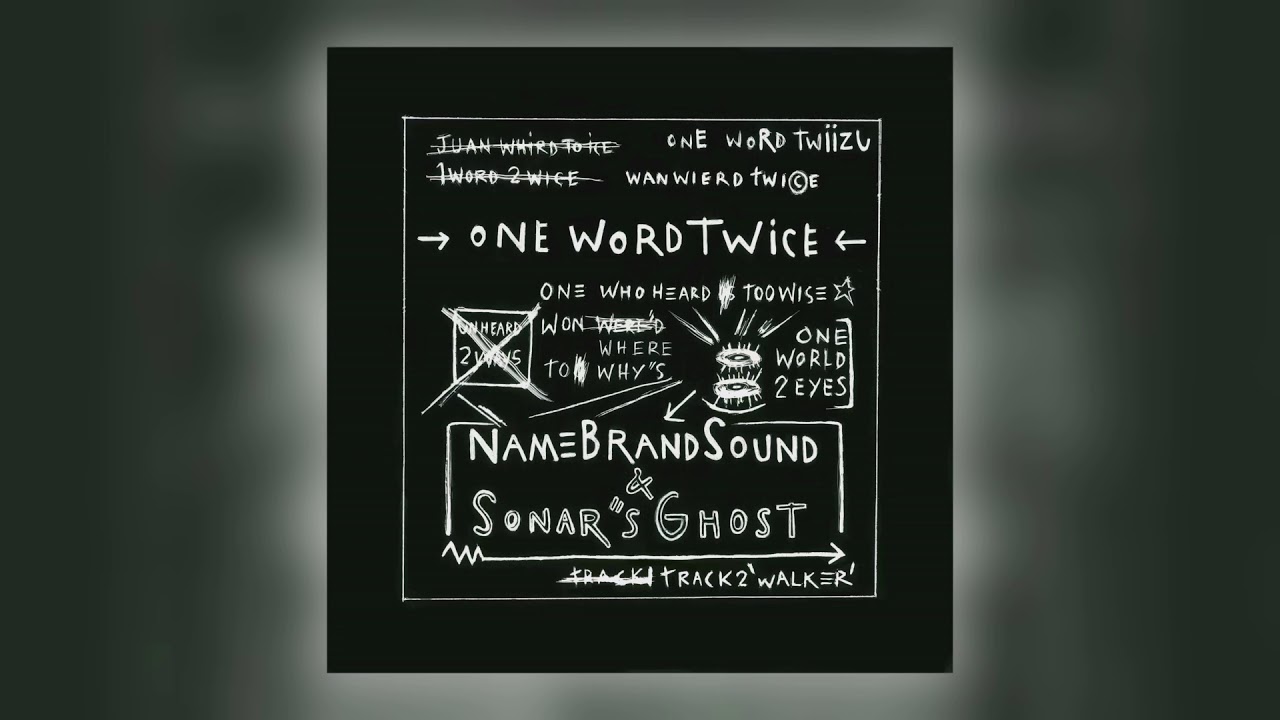 JUAN WHIRD TO ICE
ONE WORD TWiiZU
1 WORD 2 WICE
WANWIERD TWI©E
→ ONE WORD TWiCE ←
ONE WHO HEARD TOO WISE ☆
UNHEARD
2 WAYS
WON WERE'D
WHERE
TO WHY"S
ONE
WORLD
2 EYES
NAMEBRANDSOUND
&
SONAR"S GHOST
TRACK1 TRACK2 'WALKER'